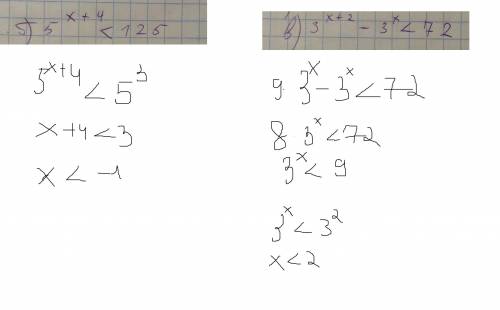 б) 5^{x+4} < 125
5^{x+4} < 5^3
x+4<3
x < -1
в) 3^{x+2} - 3^x < 72
9 · 3^x - 3^x < 72
8 3^x < 72
3^x < 9
3^x < 3^2
x < 2